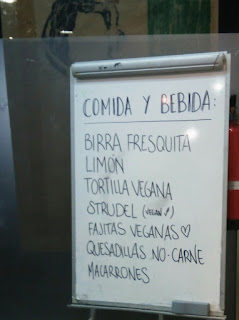 COMIDA Y BEBIDA:
BIRRA FRESQUITA
LIMÓN
TORTILLA VEGANA
STRUDEL (VEGAN)
FAJITAS VEGANAS ♡
QUESADILLAS NO-CARNE
MACARRONES